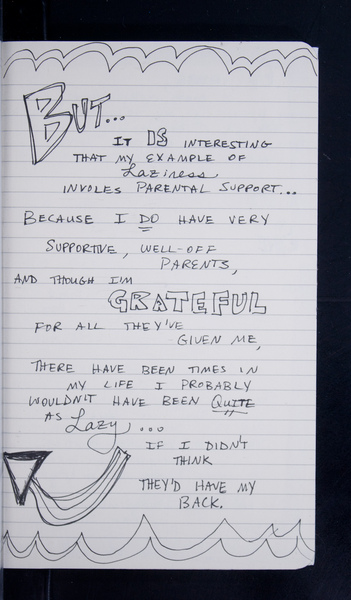 BUT...
IT IS INTERESTING
THAT MY EXAMPLE OF
Laziness
INVOLES PARENTAL SUPPORT...
BECAUSE I DO HAVE VERY
SUPPORTIVE, WELL-OFF
PARENTS,
AND THOUGH I'M
GRATEFUL
FOR ALL THEY'VE
GIVEN ME,
THERE HAVE BEEN TIMES IN
MY LIFE I PROBABLY
WOULDN'T HAVE BEEN QUITE
AS Lazy...
IF I DIDN'T
THINK
THEY'D HAVE MY
BACK.